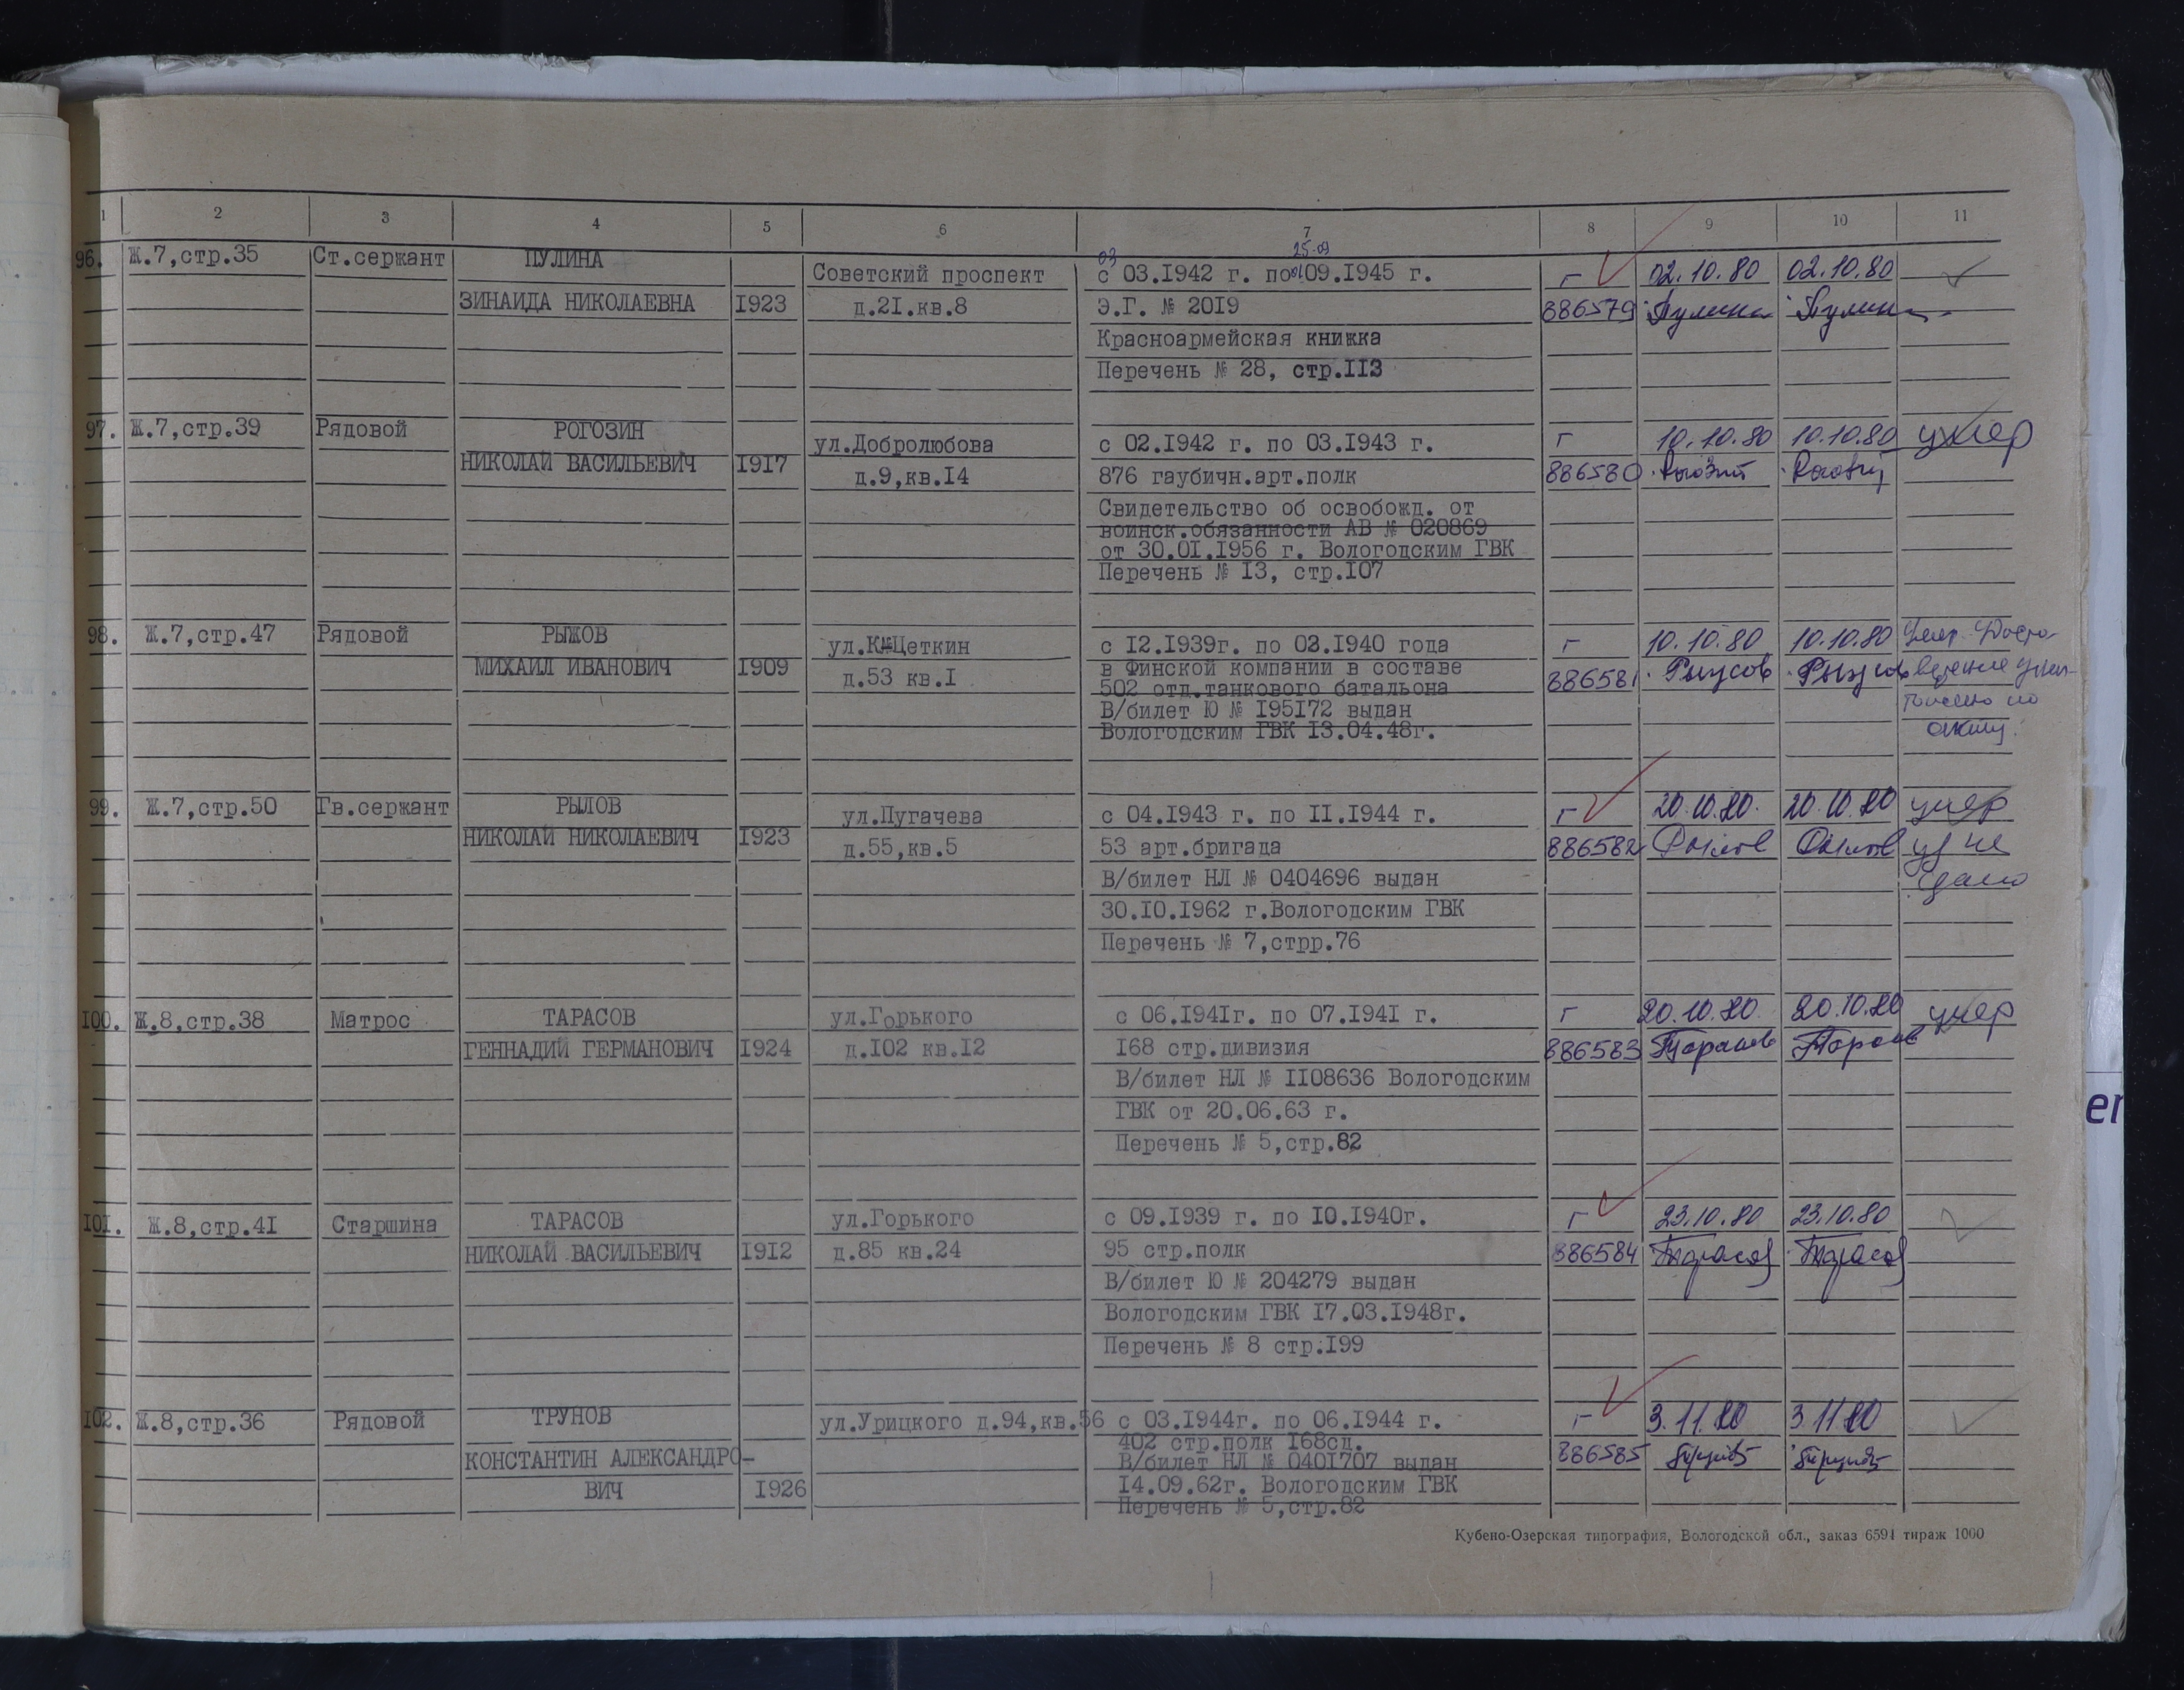 1 2 3 4 5 6 7 8 9 10 11
03 25.09
96. Ж.7,стр.35 Ст.сержант ПУЛИНА Советский проспект с 03.1942 г. по 09.1945 г. г 02.10.80 02.10.80
ЗИНАИДА НИКОЛАЕВНА 1923 д.21.кв.8 Э.Г. № 2019 886579 Пулина Пулина
Красноармейская книжка
Перечень № 28, стр.113
97. Ж.7,стр.39 Рядовой РОГОЗИН ул.Добролюбова с 02.1942 г. по 03.1943 г. г 10.10.80 10.10.80 умер
НИКОЛАЙ ВАСИЛЬЕВИЧ 1917 д.9,кв.14 876 гаубичн.арт.полк 886580
Свидетельство об освобожд. от
воинск.обязанности АВ № 020869
от 30.01.1956 г. Вологодским ГВК
Перечень № 13, стр.107
98. Ж.7,стр.47 Рядовой РЫЖОВ ул.К.Цеткин с 12.1939г. по 03.1940 года г 10.10.80 10.10.80 Умер. Удосто-
МИХАИЛ ИВАНОВИЧ 1909 д.53 кв.1 в Финской компании в составе 886581 Рыжов Рыжов верение уничтожено по
502 отд.танкового батальона
В/билет Ю № 195172 выдан
Вологодским ГВК 13.04.48г. акту.
99. Ж.7,стр.50 Гв.сержант РЫЛОВ ул.Пугачева с 04.1943 г. по 11.1944 г. г 20.10.80. 20.10.80 умер
НИКОЛАЙ НИКОЛАЕВИЧ 1923 д.55,кв.5 53 арт.бригада 886582 Рылов Рылов уд не
В/билет НЛ № 0404696 выдан сдано
30.10.1962 г.Вологодским ГВК
Перечень № 7,стрр.76
100. Ж.8,стр.38 Матрос ТАРАСОВ ул.Горького с 06.1941г. по 07.1941 г. г 20.10.80 20.10.80 умер
ГЕННАДИЙ ГЕРМАНОВИЧ 1924 д.102 кв.12 168 стр.дивизия 886583 Тарасов Тарасов
В/билет НЛ № 1108636 Вологодским
ГВК от 20.06.63 г.
Перечень № 5,стр.82
101. Ж.8,стр.41 Старшина ТАРАСОВ ул.Горького с 09.1939 г. по 10.1940г. г 23.10.80 23.10.80
НИКОЛАЙ ВАСИЛЬЕВИЧ 1912 д.85 кв.24 95 стр.полк 886584 Тарасов Тарасов
В/билет Ю № 204279 выдан
Вологодским ГВК 17.03.1948г.
Перечень № 8 стр.199
102. Ж.8,стр.36 Рядовой ТРУНОВ ул.Урицкого д.94,кв.56 с 03.1944г. по 06.1944 г. г 3.11.80 3.11.80
402 стр.полк 168сд.
КОНСТАНТИН АЛЕКСАНДРО- В/билет НЛ № 0401707 выдан 886585 Трунов Трунов
ВИЧ 1926 14.09.62г. Вологодским ГВК
Перечень № 5,стр.82
Кубено-Озерская типография, Вологодской обл., заказ 6591 тираж 1000